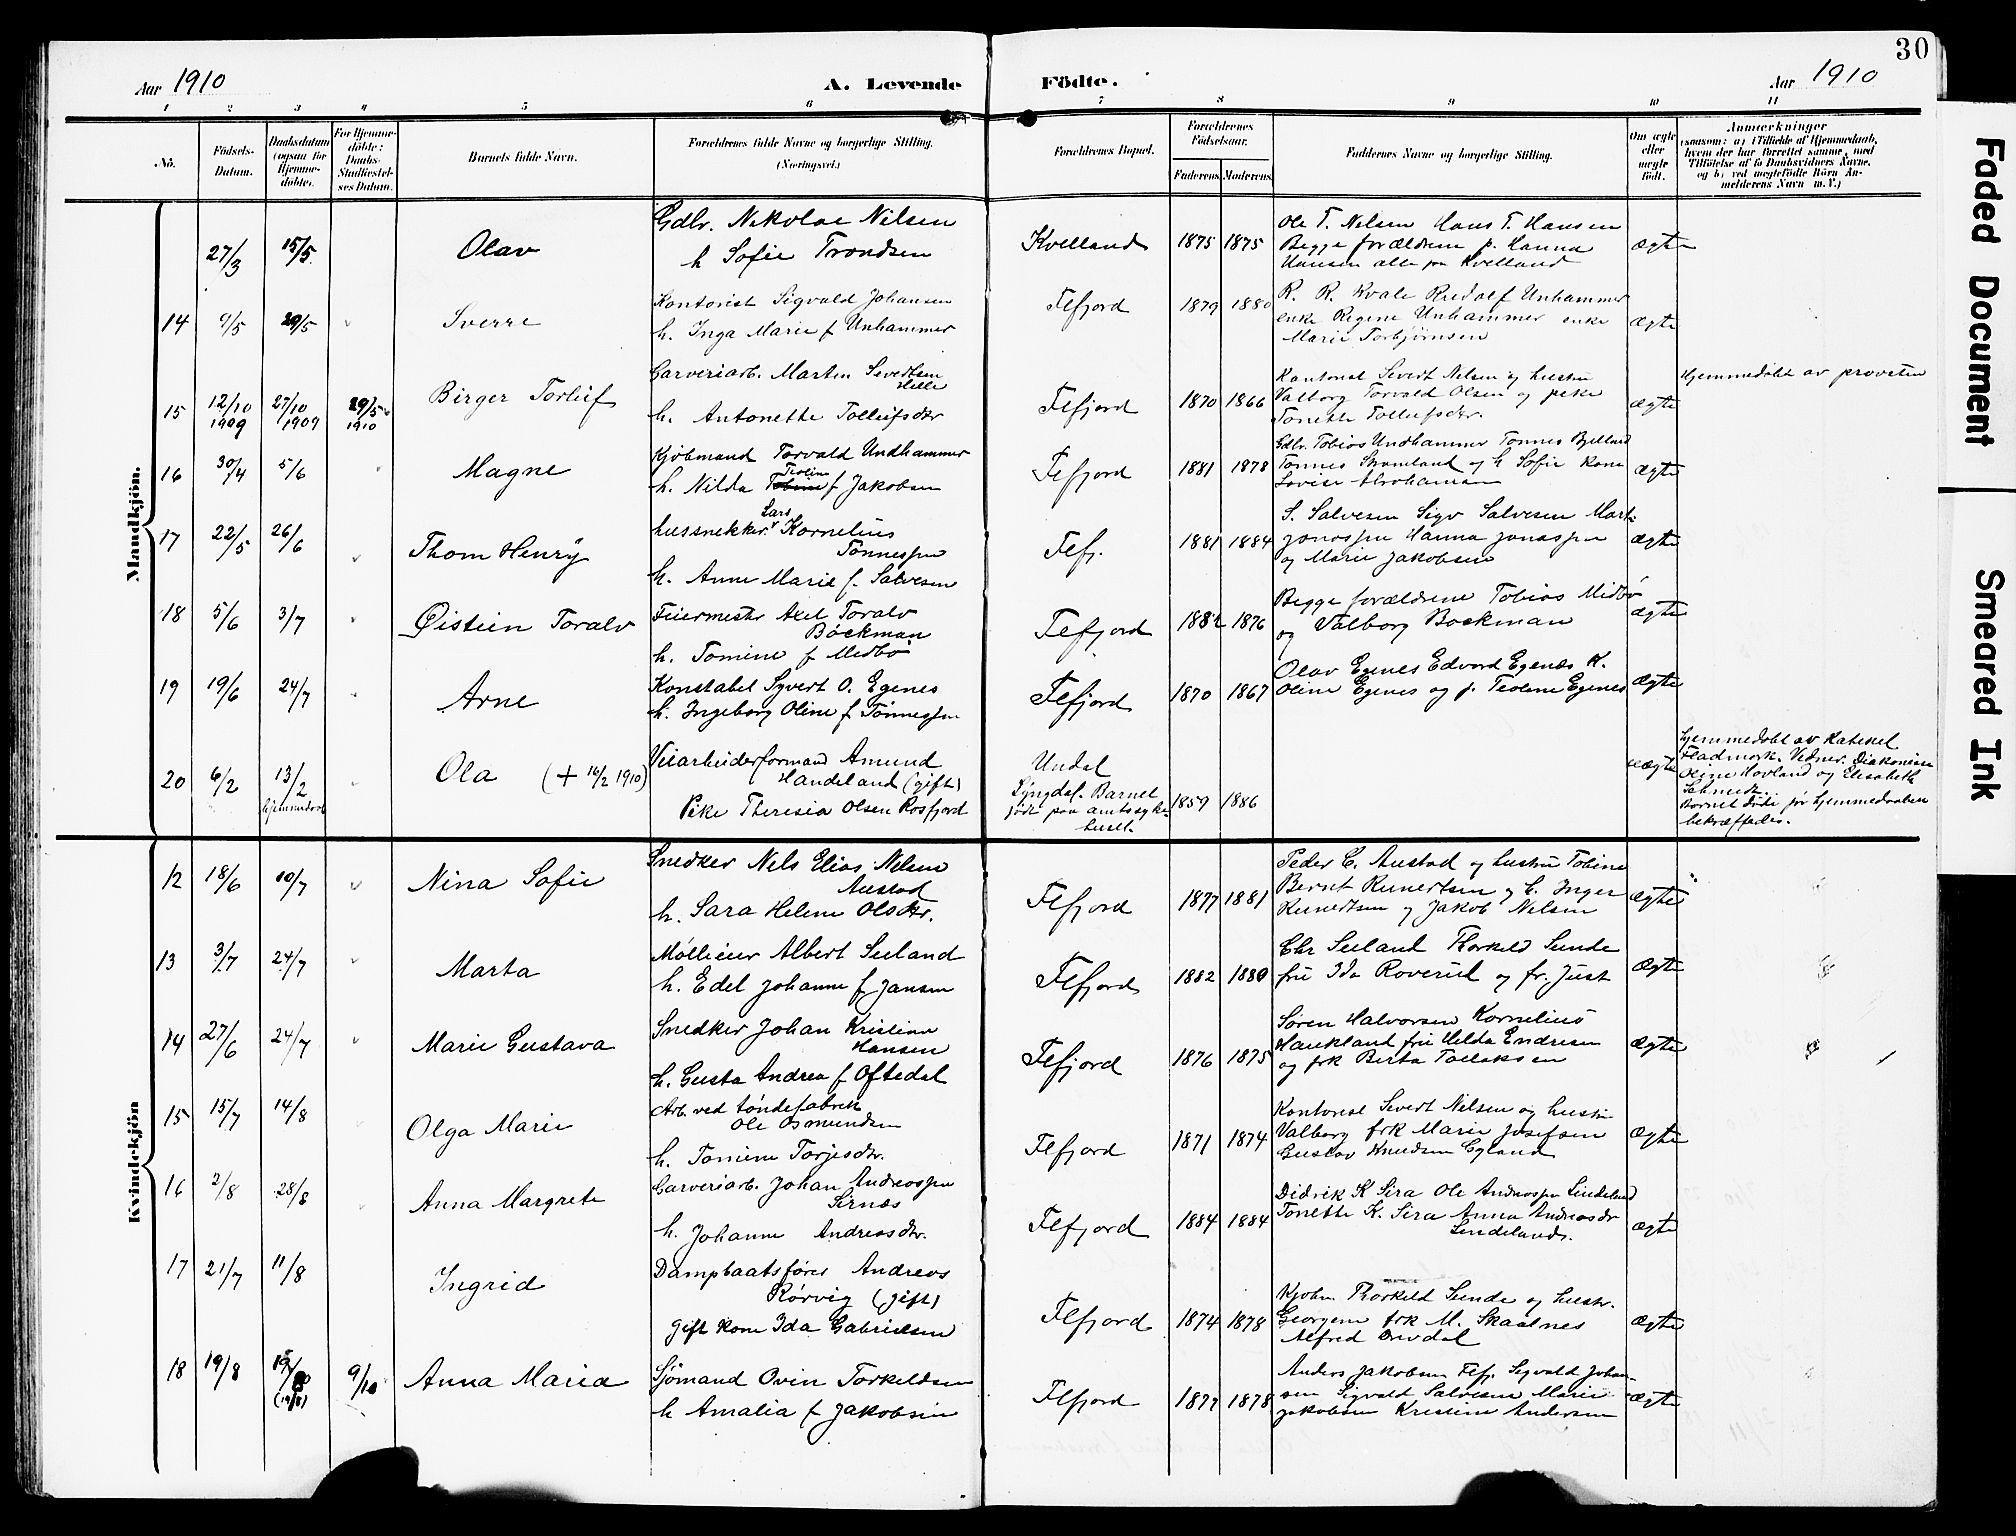 30
Aar 1910
A. Levende
Födte.
Aar 1910
1 2 3 4 5 6 7 8 9 10 11
No.
Födsels-Datum.
Daabsdatum (ogsaa for Hjemme-döbte).
For Hjemme-döbte: Daabs-Stadfæstel-ses Datum.
Barnets fulde Navn.
Forældrenes fulde Navne og borgerlige Stilling. (Næringsvei.)
Forældrenes Bopæl.
Forældrenes Födselsaar.
Faderens. Moderens.
Faddernes Navne og borgerlige Stilling.
Om ægte eller uægte födt.
Anmærkninger
(saasom: a) i Tilfælde af Hjemmedaab, hvem der har forrettet samme, med Tilföielse af to Daabsvidners Navne, og b) ved uægtefödte Börn An-melderens Navn m. V.)
Mandkjön.
27/3 15/5 Olav
Gdbr. Nikolai Nilsen
h Sofie Trondsen
Kvelland 1875 1875
Ole T. Nilsen Hans T. Hansen
Begge forældrene p. Hanna
Hansen alle paa Kvelland
ægte
14 9/5 29/5 Sverre
Kontorist Sigvald Johansen
h. Inga Marie f Unhammer
Flefjord 1879 1880
R. R. Kvale Rudolf Unhammer
enke Regine Unhammer enke
Marie Torbjørnsen
ægte
15 12/10 1909 27/10 1909 29/5 1910 Birger Torleif
Garveriarb. Martin Severtsen
Hille
h. Antonette Tolleifsdtr
Flefjord 1870 1866
Kontorist Severt Nelsen og hustru
Valborg Torvald Olsen og pike
Tonette Tollefsdtr.
ægte
Hjemmedøbt av provsten
16 30/4 5/6 Magne
Kjøbmand Torvald Undhammer
h. Nilda Teoline f Jakobsen
Flefjord 1881 1878
Gdbr. Tobias Undhammer Tonnes Bjelland
Tonnes Stromland og h Sofie kone
Lovise Abrahamsen
ægte
17 22/5 26/6 Thom Henry
hussnekker Lars Kornelius
Tønnessen
h. Anne Marie f. Salvesen
Flefj. 1881 1884
S. Salvesen Sigv Salvesen Mart.
Jonassen Hanna Jonassen
og Marie Jakobsen
ægte
18 5/6 3/7 Øistein Toralv
Feiermester Axel Toralv
Böckman
h. Tomine f Medbø
Flefjord 1882 1876
Begge forældrene Tobias Midbø
og Valborg Bockman
ægte
19 19/6 24/7 Arne
Konstabel Syvert O. Egenes
h. Ingeborg Oline f Tønnessen
Flefjord 1870 1867
Olav Egenes Edvard Egenæs K.
Oline Egenes og p. Teoline Egenes
ægte
20 6/2 13/2 hjemmedøbt Ola (+ 16/2 1910)
Veiarbeiderformand Amund
Handeland (gift)
Pike Theresia Olsen Rosfjord
Undal
Lyngdal. Barnet
født paa amtssyke-
huset.
1859 1886
uægte
Hjemmedøbt av Kateket
Fladmork. Vidner. Diakonisse
Oline Hovland og Elisabeth
Schmedt.
Barnet døde før hjemmedaaben
bekræftedes.
Kvindekjön
12 18/6 10/7 Nina Sofie
Snedker Nels Elias Nelsen
Austad
h. Sara Helene Olsdtr.
Flefjord 1877 1881
Peder C. Austad og hustru Tobine
Bernt Reinertsen og h. Inger
Reinertsen og Jakob Nelsen
ægte
13 3/7 24/7 Marta
Møllieier Albert Seeland
h. Edel Johanne f Jansen
Flefjord 1882 1880
Chr Seeland Thorkeld Sunde
fru Ida Roverud og fr. Just
ægte
14 27/6 24/7 Marie Gustava
Snedker Johan Kristian
Hansen
h. Gusta Andrea f Oftedal
Flefjord 1876 1875
Søren Halvorsen Kornelius
Haukland fru Hilda Endresen
og frk Berta Tollaksen
ægte
15 15/7 14/8 Olga Marie
Arb. ved tøndefabrik
Ole Osmundsen
h. Tomine Torjesdtr.
Flefjord 1871 1874
Kontorist Severt Nelsen og hustru
Valborg frk Marie Josefsen
Gustav Knudsen Egland
ægte
16 2/8 28/8 Anna Margrete
Garveriarb. Johan Andreassen
Sirnæs
h. Johanne Andreasdtr.
Flefjord 1884 1884
Didrik K Sira Ole Andreassen Lindeland
Tonette K. Sira Anna Andreasdr
Lindeland.
ægte
17 21/7 11/8 Ingrid
Dampbaatsfører Andreas
Rørvig (gift)
gift kone Ida Gabrielsen
Flefjord 1874 1878
Kjøbm Thorkeld Sunde og hustr.
Georgine frk M. Skaalnes
Alfred Drivdal
ægte
18 19/8 (19/8) 9/10 Anna Maria
Sjømand Ovin Torkeldsen
h Amalia f Jakobsen
Flefjord 1877 1878
Anders Jakobsen Flefj. Sigvald Johan-
sen Sigvald Salvesen Marie
Jakobsen Kristine Andersen
ægte
Faded Document
Smeared Ink